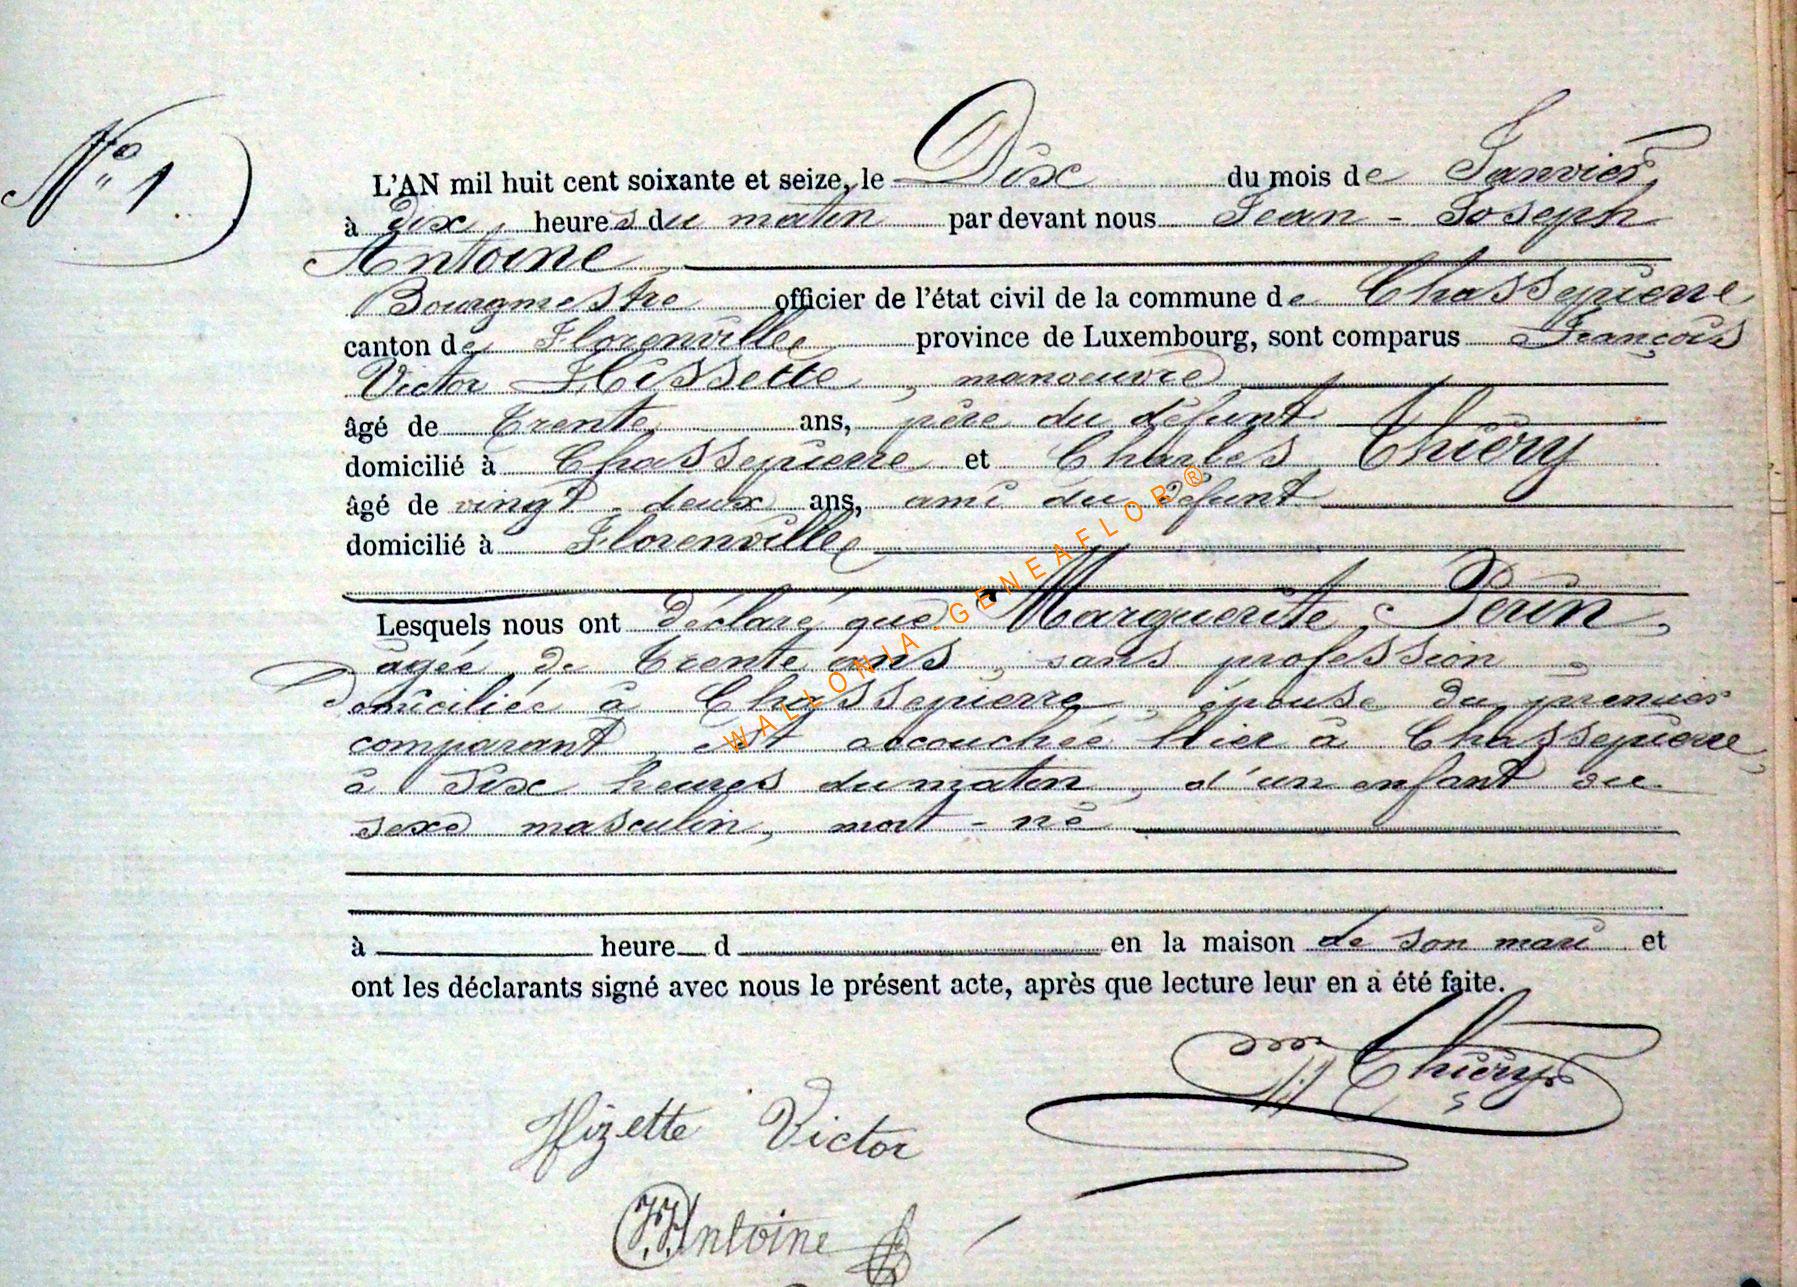 N° 1
L'AN mil huit cent soixante et seize, le Dix du mois de Janvier
à dix heures du matin par devant nous Jean - Joseph
Antoine
Bourgmestre officier de l'état civil de la commune de Chassepierre
canton de Florenville province de Luxembourg, sont comparus François
Victor Hissette, manoeuvre
âgé de trente ans, père du défunt
domicilié à Chassepierre et Charles Thiéry
âgé de vingt-deux ans, ami du défunt
domicilié à Florenville
Lesquels nous ont déclaré que Marguerite Perin,
agée de trente ans, sans profession,
Domiciliée à Chassepierre, épouse du premier
comparant, est accouchée hier à Chassepierre,
à Six heures du matin, d'un enfant du
sexe masculin, mort-né
à heure d en la maison de son mari et
ont les déclarants signé avec nous le présent acte, après que lecture leur en a été faite.
Thiéry
Hizette Victor
J.J. Antoine
WALLONIA-GENEAFLOR®